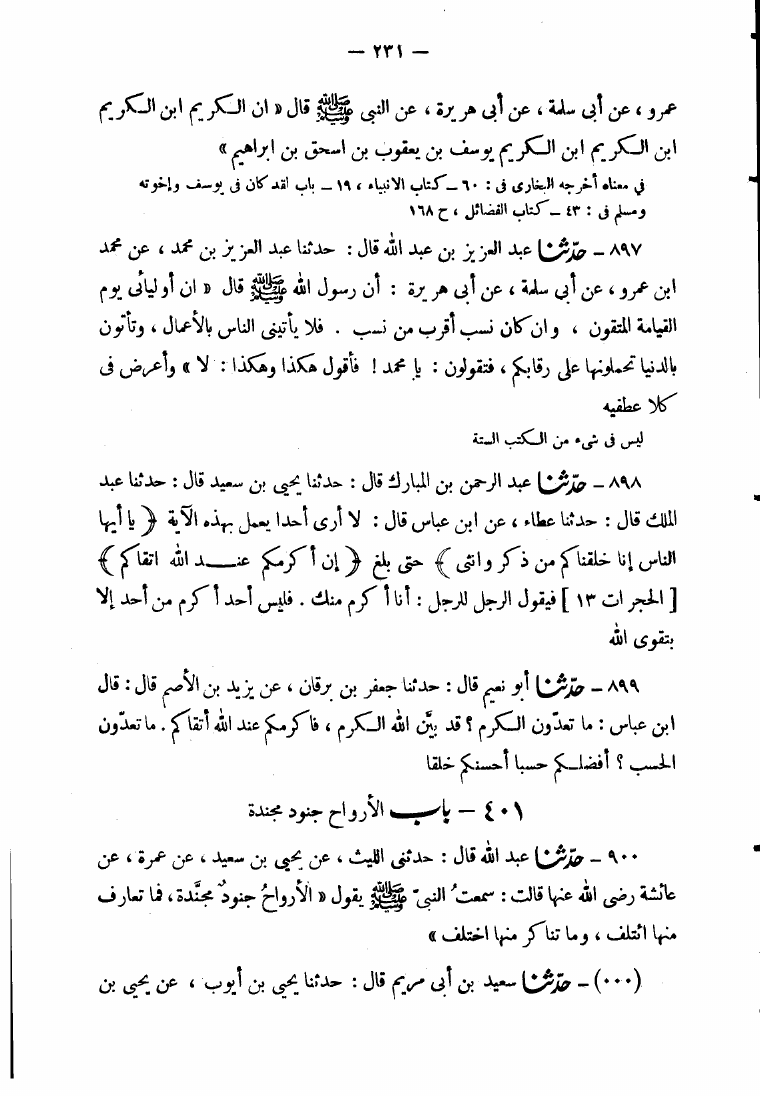 — ٢٣١ —
عمرو ، عن أبى سلمة ، عن أبى هريرة ، عن النبى ﷺ قال « ان الكريم ابن الكريم
ابن الكريم ابن الكريم يوسف بن يعقوب بن اسحق بن ابراهيم »
في معناه أخرجه البخارى فى : ٦٠ ـ كتاب الانبياء ، ١٩ ـ باب لقد كان فى يوسف وإخوته
ومسلم فى : ٤٣ ـ كتاب الفضائل ، ح ١٦٨
٨٩٧ ـ حدّثنا عبد العزيز بن عبد الله قال : حدثنا عبد العزيز بن محمد ، عن محمد
ابن عمرو ، عن أبى سلمة ، عن أبى هريرة : أن رسول الله ﷺ قال « ان أوليائى يوم
القيامة المتقون ، وان كان نسب أقرب من نسب . فلا يأتينى الناس بالأعمال ، وتأتون
بالدنيا تحملونها على رقابكم ، فتقولون : يا محمد ! فأقول هكذا وهكذا : لا » وأعرض فى
كلا عطفيه
ليس فى شىء من الكتب الستة
٨٩٨ ـ حدّثنا عبد الرحمن بن المبارك قال : حدثنا يحيى بن سعيد قال : حدثنا عبد
الملك قال : حدثنا عطاء ، عن ابن عباس قال : لا أرى أحدا يعمل بهذه الآية ﴿ يا أيها
الناس إنا خلقناكم من ذكر وانثى ﴾ حتى بلغ ﴿ إن أكرمكم عنـد الله اتقاكم ﴾
[ الحجرات ١٣ ] فيقول الرجل للرجل : أنا أكرم منك . فليس أحد أكرم من أحد إلا
بتقوى الله
٨٩٩ ـ حدّثنا أبو نعيم قال : حدثنا جعفر بن برقان ، عن يزيد بن الأصم قال : قال
ابن عباس : ما تعدّون الكرم ؟ قد بيَّن الله الكرم ، فاكرمكم عند الله أتقاكم . ما تعدّون
الحسب ؟ أفضلكم حسبا أحسنكم خلقا
٤٠١ — باب الأرواح جنود مجندة
٩٠٠ ـ حدّثنا عبد الله قال : حدثنى الليث ، عن يحيى بن سعيد ، عن عمرة ، عن
عائشة رضى الله عنها قالت : سمعتُ النبىّ ﷺ يقول « الأرواحُ جنودٌ مجنَّدة ، فما تعارف
منها ائتلف ، وما تناكر منها اختلف »
(٠٠٠) ـ حدّثنا سعيد بن أبى مريم قال : حدثنا يحيى بن أيوب ، عن يحيى بن